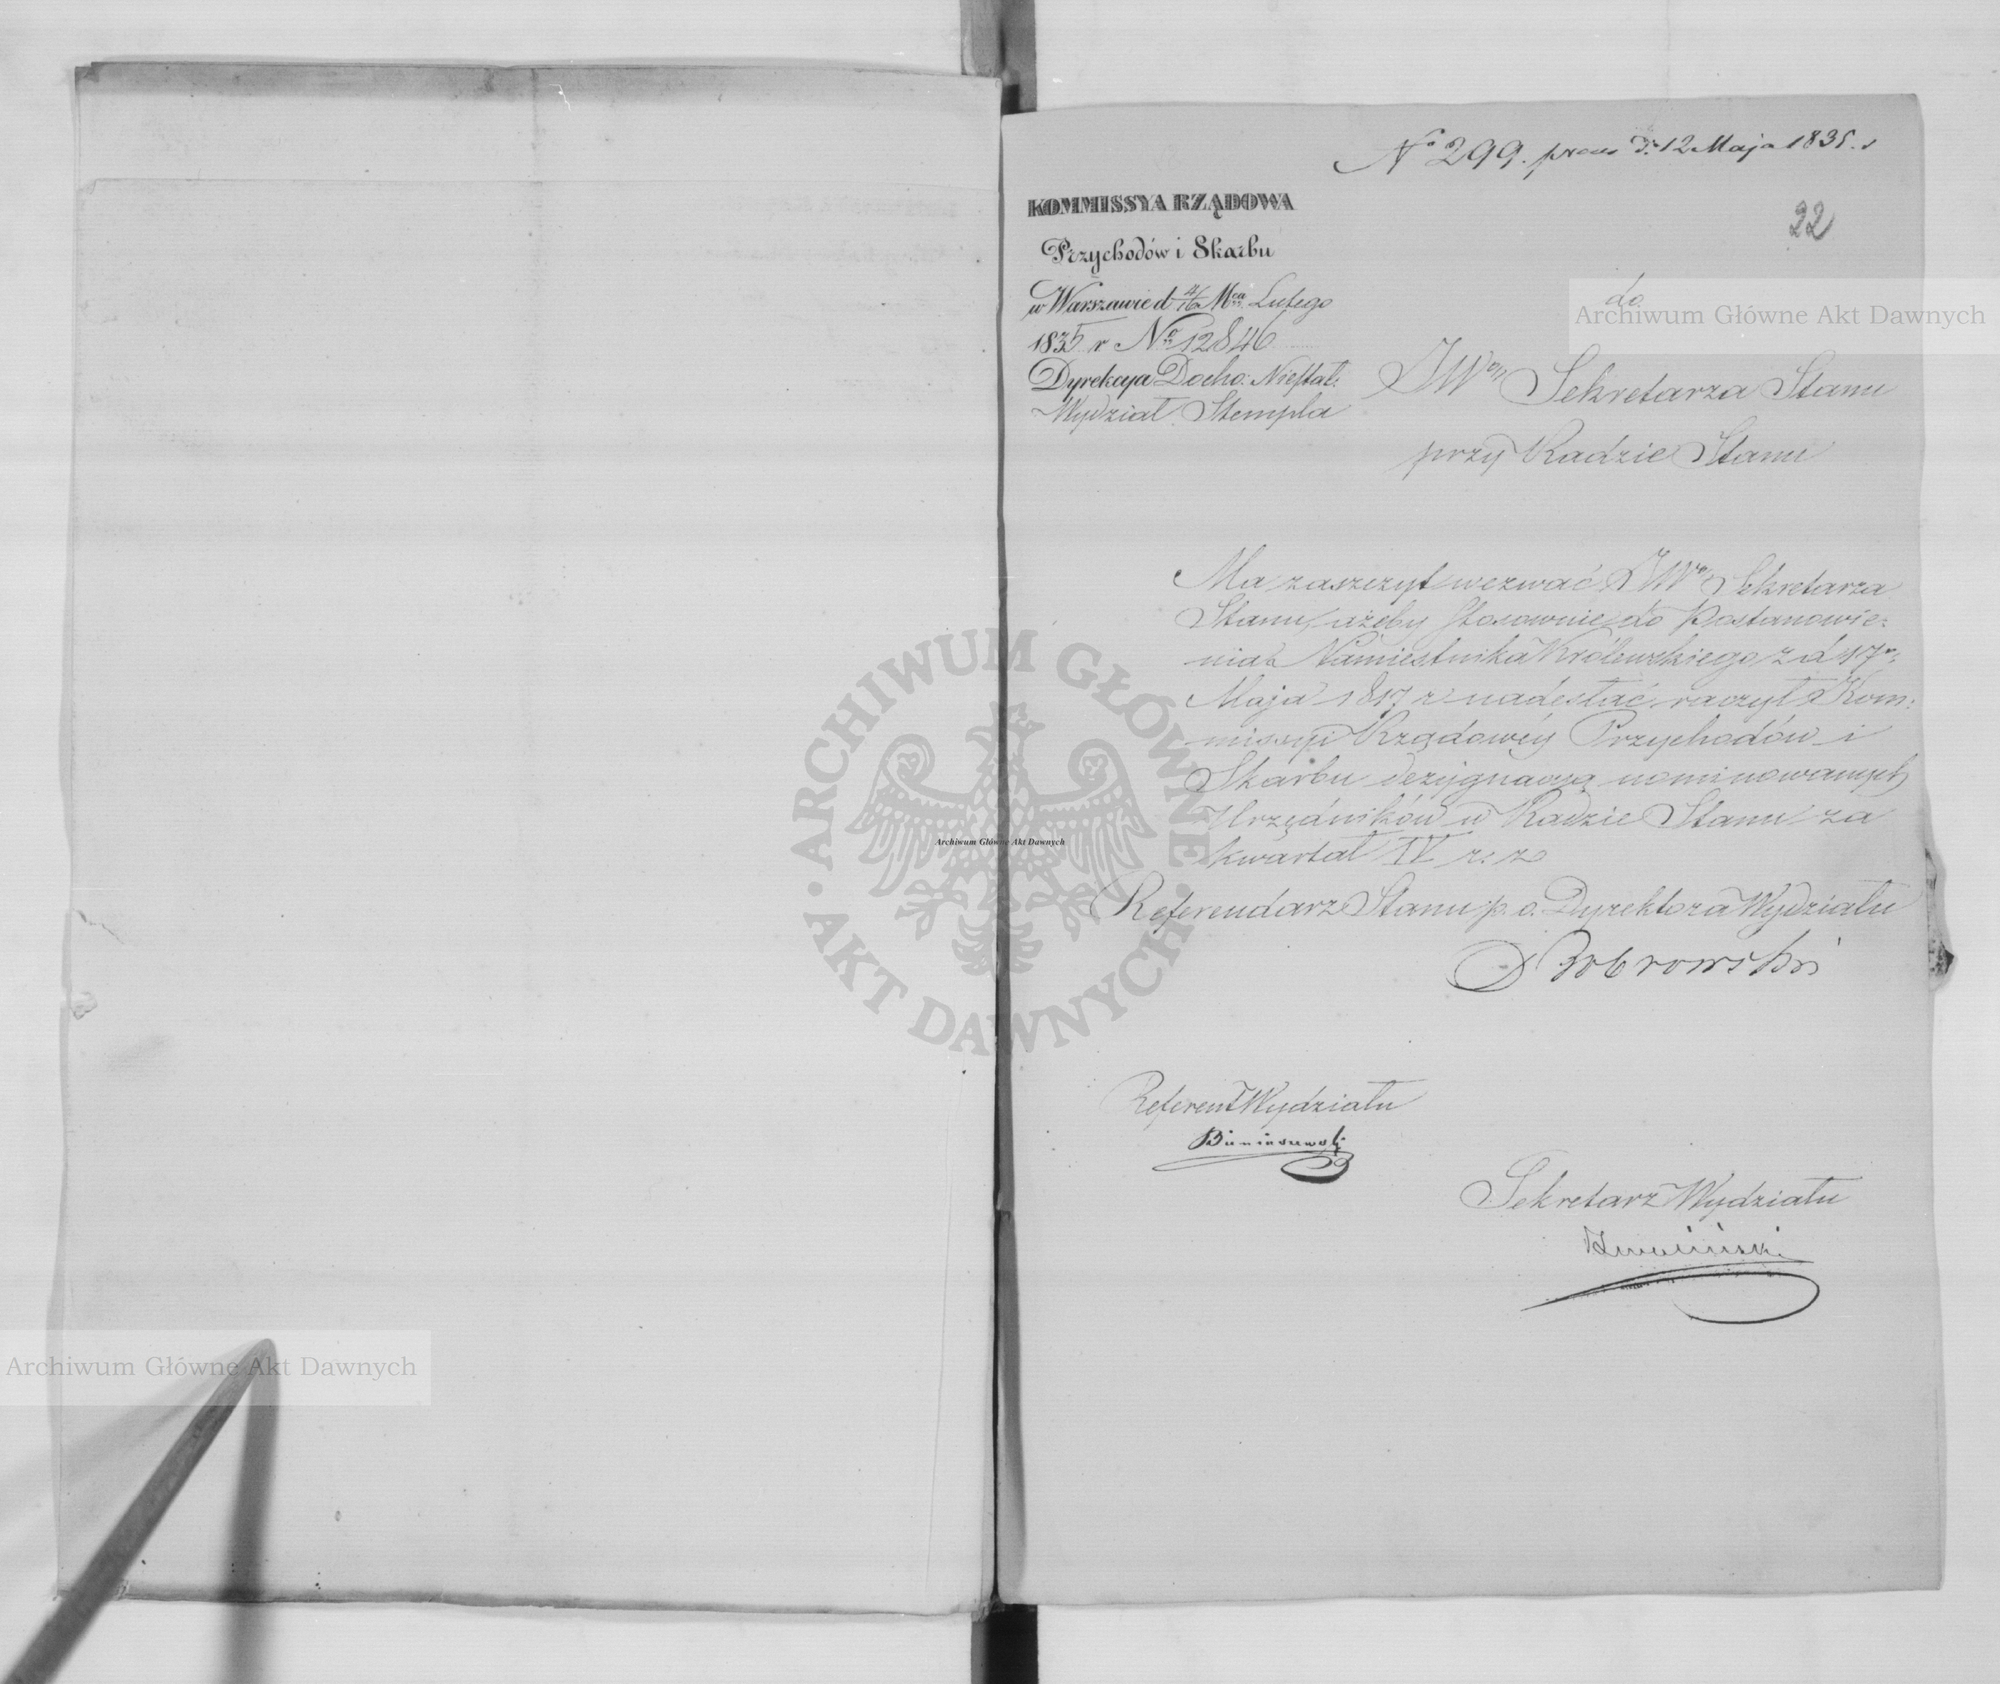 No 299. praes d. 12 Maja 1835. r
22
KOMMISSYA RZĄDOWA
Przychodów i Skarbu
w Warszawie d 4/16 Mca Lutego
1835 r No 12846
Dyrekcya Docho: Niestał:
Wydział Stempla
do
JWgo Sekretarza Stanu
przy Radzie Stanu
Ma zaszczyt wezwać JWgo Sekretarza
Stanu, ażeby stosownie do Postanowie:
nia Namiestnika Królewskiego z d 17go
Maja 1817 r nadesłać raczył Kom:
missyi Rządowéy Przychodów i
Skarbu dezygnacyą nominowanych
Urzędników w Radzie Stanu za
kwartał IV r: z
Referendarz Stanu p. o. Dyrektora Wydziału
Bobrowski
Referent Wydziału
Bieniaszewski
Sekretarz Wydziału
Archiwum Główne Akt Dawnych
Archiwum Główne Akt Dawnych
Archiwum Główne Akt Dawnych
ARCHIWUM GŁÓWNE · AKT DAWNYCH ·